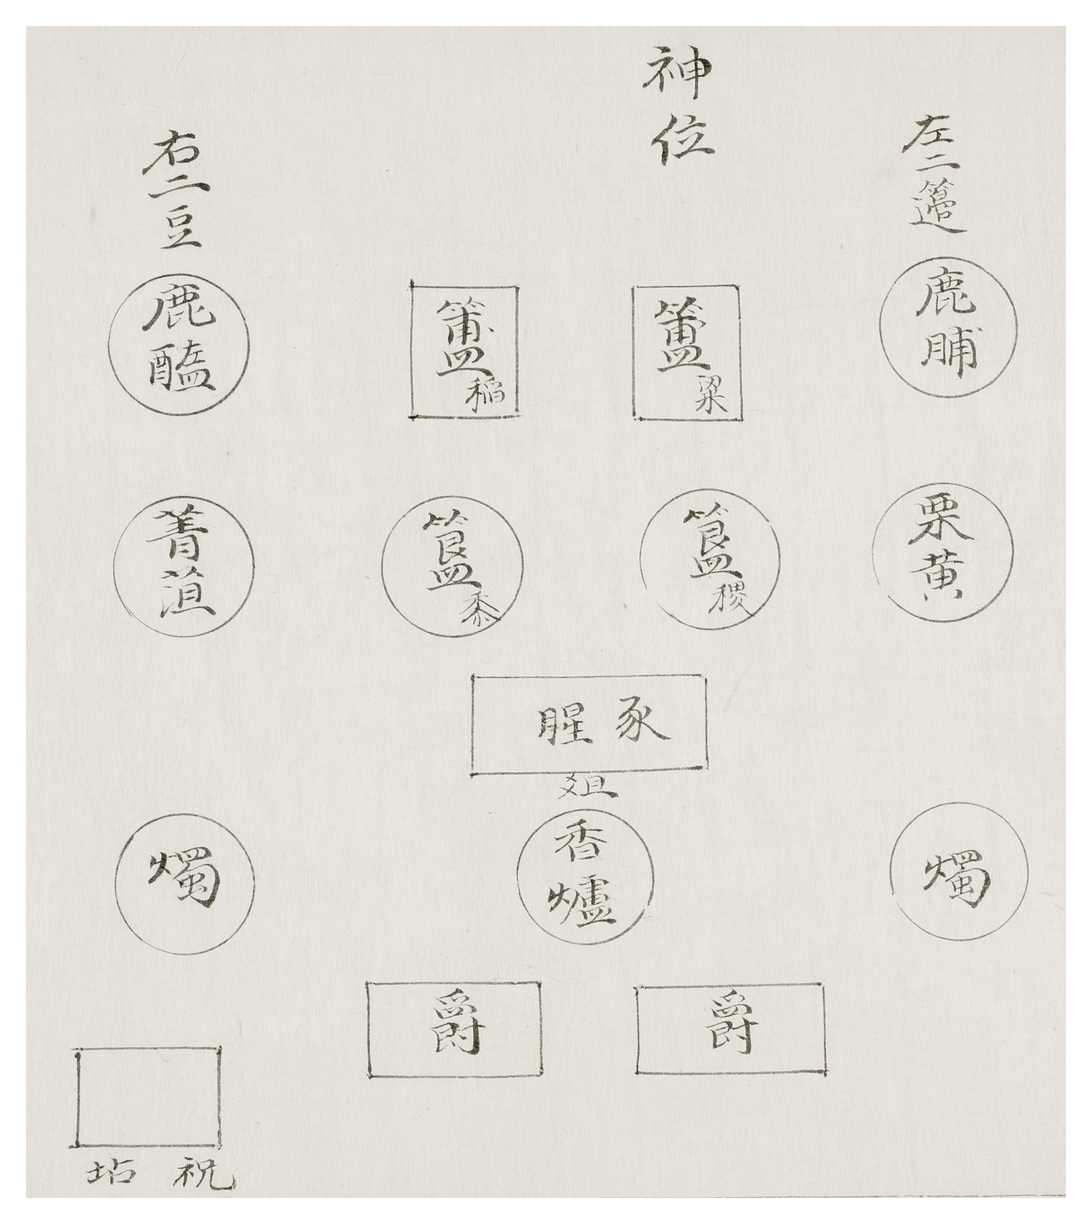 神位
左二籩
右二豆
鹿脯
簠粱
簠稻
鹿醢
栗黄
簋稷
簋黍
菁菹
豕腥
俎
燭
香爐
燭
爵
爵
祝坫